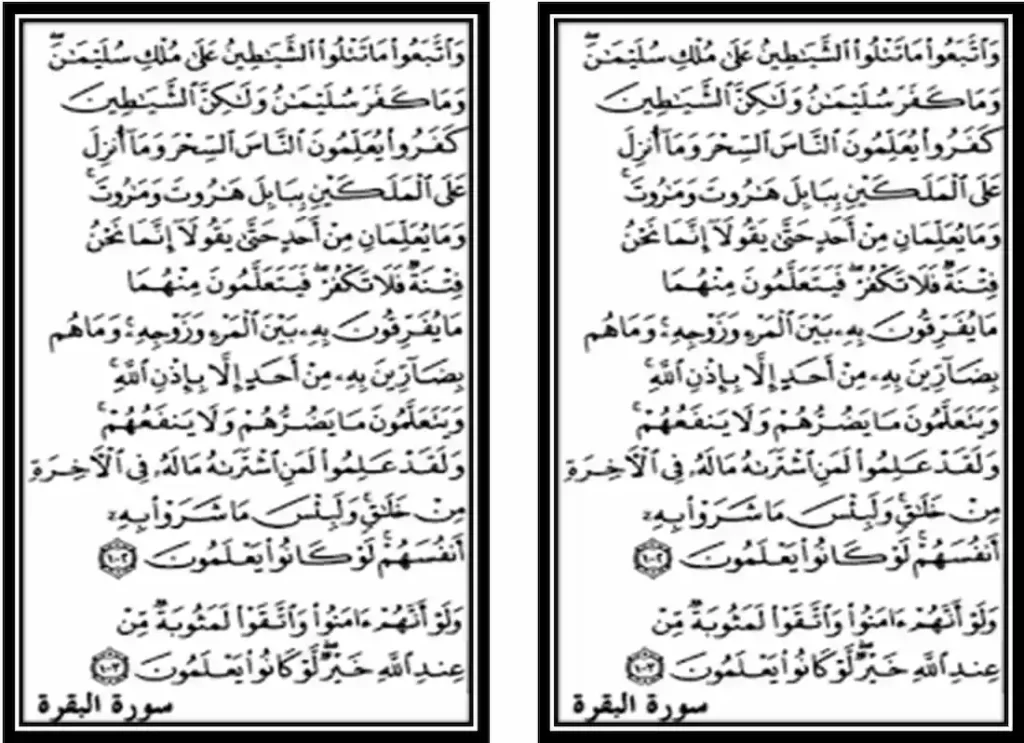 وَٱتَّبَعُوا۟ مَا تَتْلُوا۟ ٱلشَّيَـٰطِينُ عَلَىٰ مُلْكِ سُلَيْمَـٰنَ ۖ
وَمَا كَفَرَ سُلَيْمَـٰنُ وَلَـٰكِنَّ ٱلشَّيَـٰطِينَ
كَفَرُوا۟ يُعَلِّمُونَ ٱلنَّاسَ ٱلسِّحْرَ وَمَآ أُنزِلَ
عَلَى ٱلْمَلَكَيْنِ بِبَابِلَ هَـٰرُوتَ وَمَـٰرُوتَ ۚ
وَمَا يُعَلِّمَانِ مِنْ أَحَدٍ حَتَّىٰ يَقُولَآ إِنَّمَا نَحْنُ
فِتْنَةٌ فَلَا تَكْفُرْ ۖ فَيَتَعَلَّمُونَ مِنْهُمَا
مَا يُفَرِّقُونَ بِهِۦ بَيْنَ ٱلْمَرْءِ وَزَوْجِهِۦ ۚ وَمَا هُم
بِضَآرِّينَ بِهِۦ مِنْ أَحَدٍ إِلَّا بِإِذْنِ ٱللَّهِ ۚ
وَيَتَعَلَّمُونَ مَا يَضُرُّهُمْ وَلَا يَنفَعُهُمْ ۚ
وَلَقَدْ عَلِمُوا۟ لَمَنِ ٱشْتَرَىٰهُ مَا لَهُۥ فِى ٱلْـَٔاخِرَةِ
مِنْ خَلَـٰقٍ ۚ وَلَبِئْسَ مَا شَرَوْا۟ بِهِۦٓ
أَنفُسَهُمْ ۚ لَوْ كَانُوا۟ يَعْلَمُونَ ١٠٢
وَلَوْ أَنَّهُمْ ءَامَنُوا۟ وَٱتَّقَوْا۟ لَمَثُوبَةٌ مِّنْ
عِندِ ٱللَّهِ خَيْرٌ ۖ لَّوْ كَانُوا۟ يَعْلَمُونَ ١٠٣
سورة البقرة
وَٱتَّبَعُوا۟ مَا تَتْلُوا۟ ٱلشَّيَـٰطِينُ عَلَىٰ مُلْكِ سُلَيْمَـٰنَ ۖ
وَمَا كَفَرَ سُلَيْمَـٰنُ وَلَـٰكِنَّ ٱلشَّيَـٰطِينَ
كَفَرُوا۟ يُعَلِّمُونَ ٱلنَّاسَ ٱلسِّحْرَ وَمَآ أُنزِلَ
عَلَى ٱلْمَلَكَيْنِ بِبَابِلَ هَـٰرُوتَ وَمَـٰرُوتَ ۚ
وَمَا يُعَلِّمَانِ مِنْ أَحَدٍ حَتَّىٰ يَقُولَآ إِنَّمَا نَحْنُ
فِتْنَةٌ فَلَا تَكْفُرْ ۖ فَيَتَعَلَّمُونَ مِنْهُمَا
مَا يُفَرِّقُونَ بِهِۦ بَيْنَ ٱلْمَرْءِ وَزَوْجِهِۦ ۚ وَمَا هُم
بِضَآرِّينَ بِهِۦ مِنْ أَحَدٍ إِلَّا بِإِذْنِ ٱللَّهِ ۚ
وَيَتَعَلَّمُونَ مَا يَضُرُّهُمْ وَلَا يَنفَعُهُمْ ۚ
وَلَقَدْ عَلِمُوا۟ لَمَنِ ٱشْتَرَىٰهُ مَا لَهُۥ فِى ٱلْـَٔاخِرَةِ
مِنْ خَلَـٰقٍ ۚ وَلَبِئْسَ مَا شَرَوْا۟ بِهِۦٓ
أَنفُسَهُمْ ۚ لَوْ كَانُوا۟ يَعْلَمُونَ ١٠٢
وَلَوْ أَنَّهُمْ ءَامَنُوا۟ وَٱتَّقَوْا۟ لَمَثُوبَةٌ مِّنْ
عِندِ ٱللَّهِ خَيْرٌ ۖ لَّوْ كَانُوا۟ يَعْلَمُونَ ١٠٣
سورة البقرة